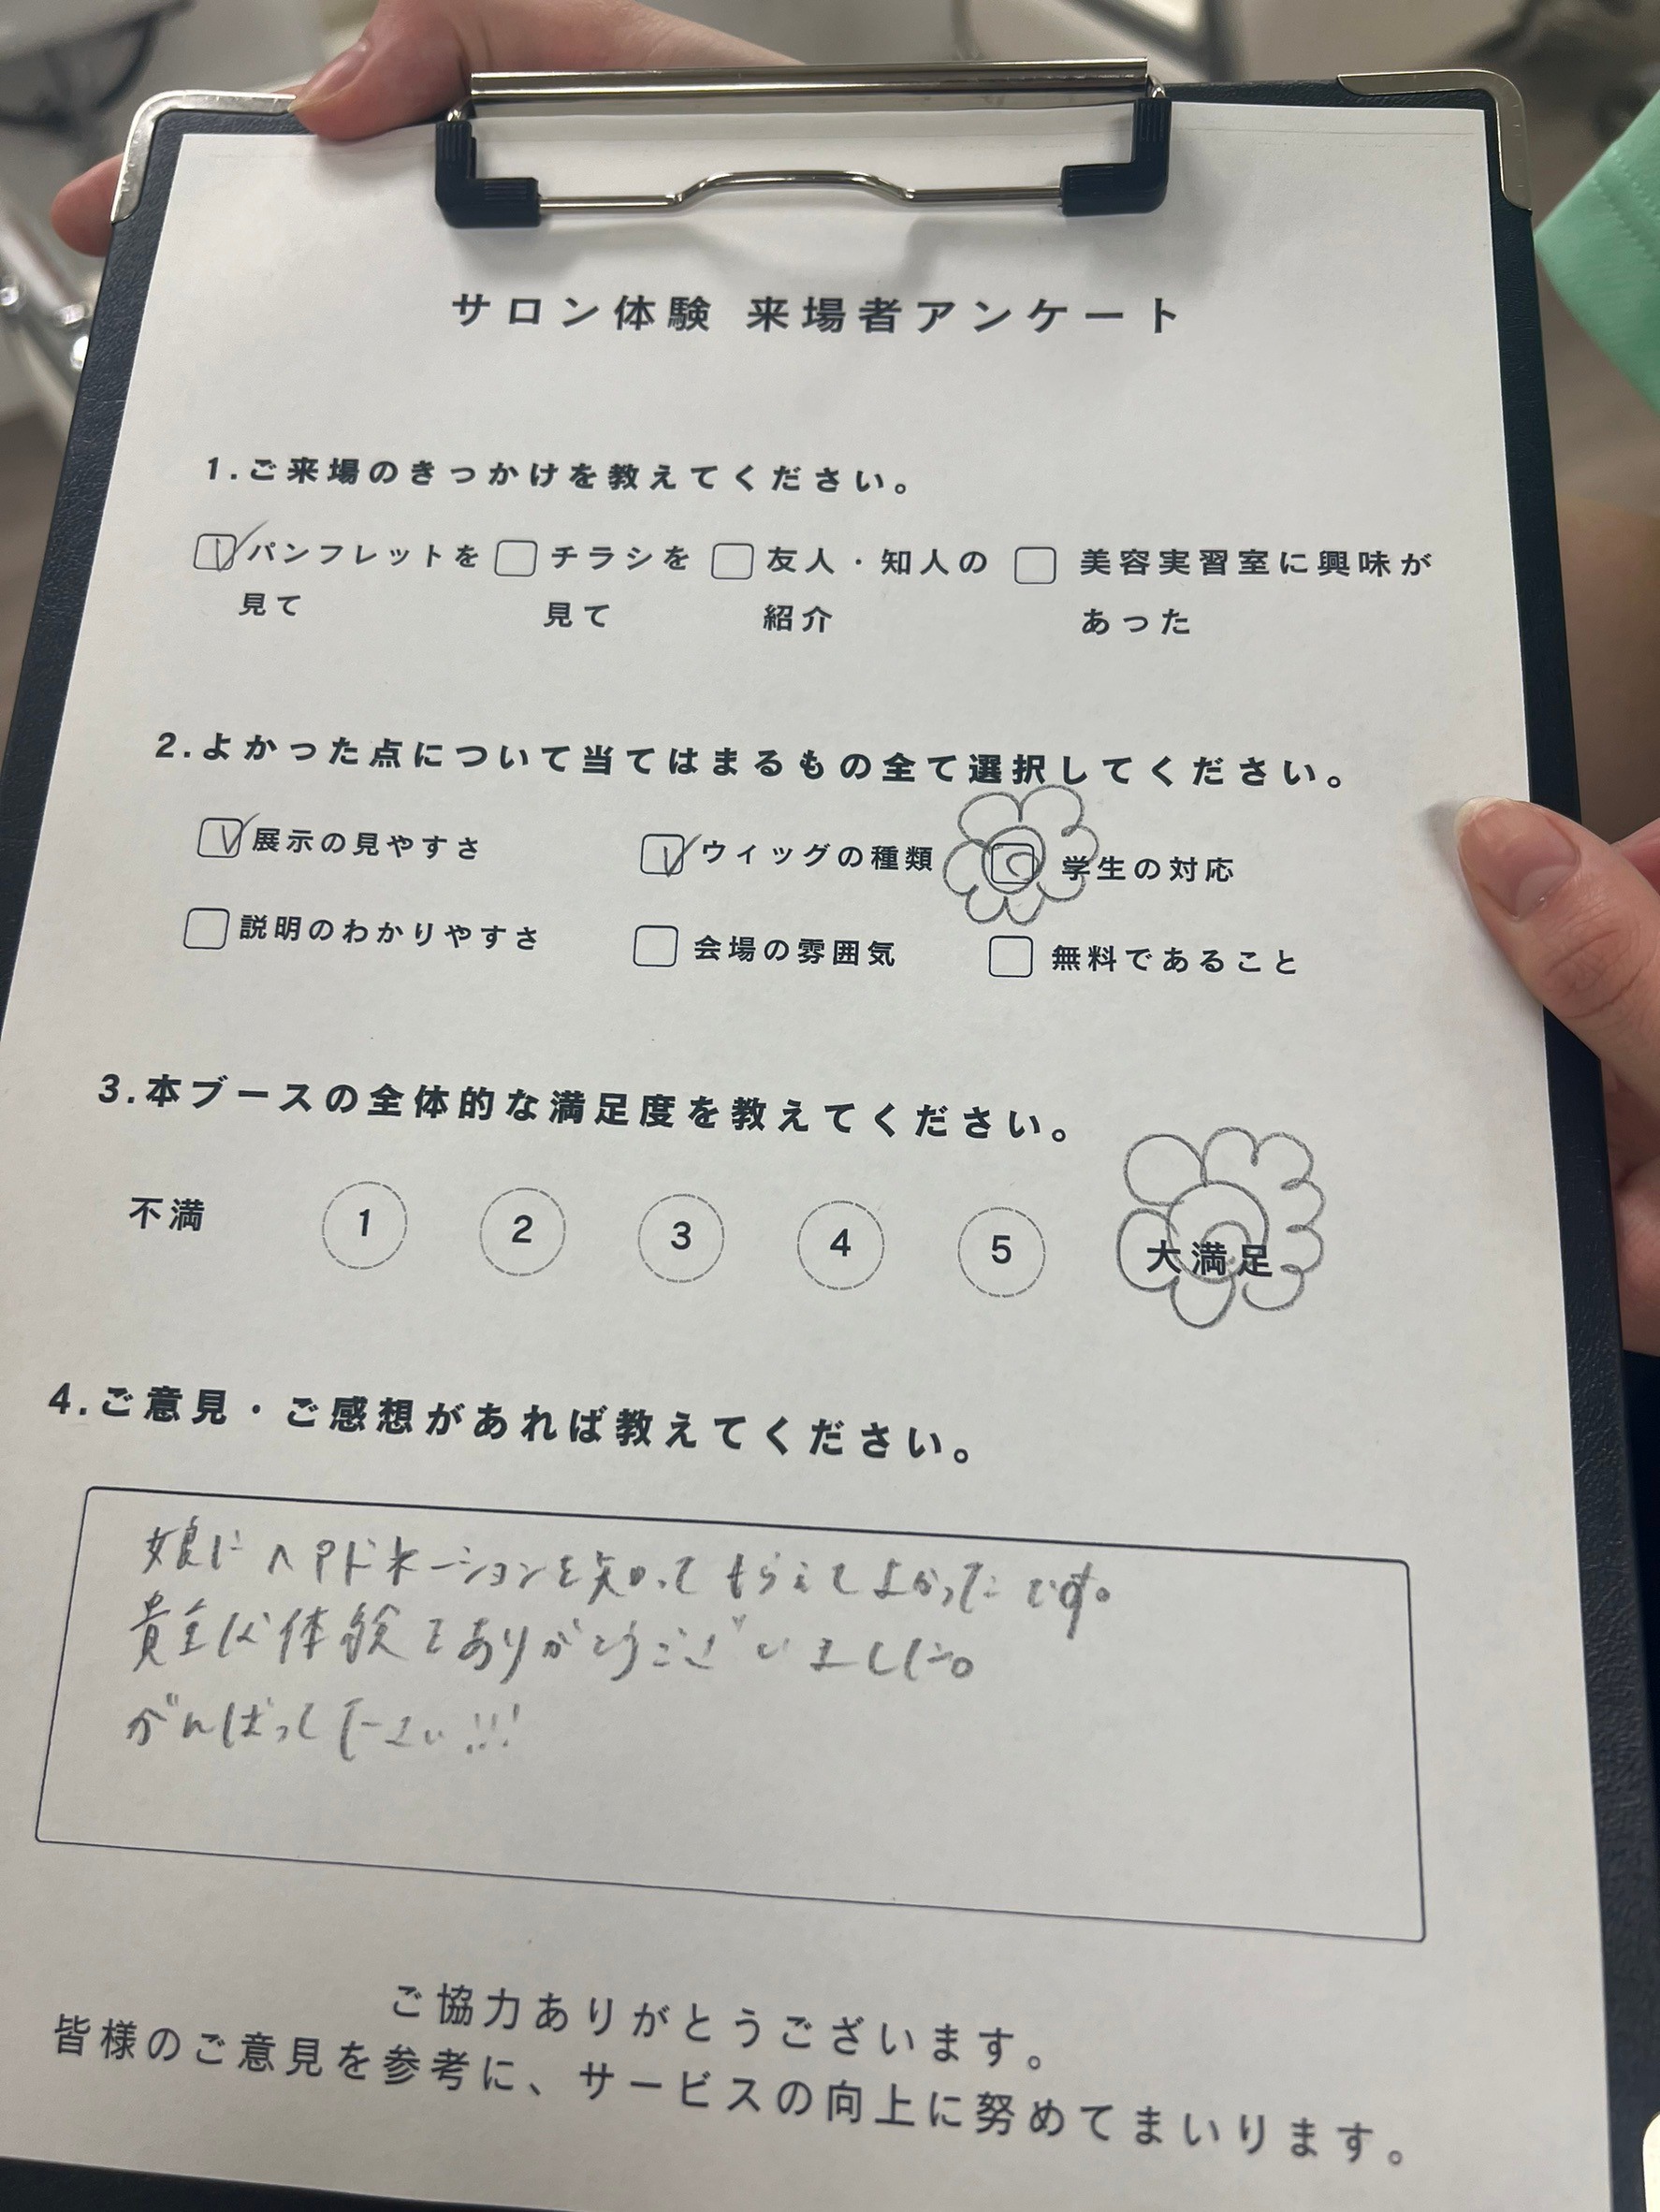 サロン体験 来場者アンケート
1.ご来場のきっかけを教えてください。
パンフレットを チラシを 友人・知人の 美容実習室に興味が
見て 見て 紹介 あった
2.よかった点について当てはまるもの全て選択してください。
展示の見やすさ ウィッグの種類 学生の対応
説明のわかりやすさ 会場の雰囲気 無料であること
3.本ブースの全体的な満足度を教えてください。
不満 1 2 3 4 5 大満足
4.ご意見・ご感想があれば教えてください。
娘にヘアドネーションを知ってもらえてよかったです。
貴重な体験をありがとうございました。
がんばってください!!!
ご協力ありがとうございます。
皆様のご意見を参考に、サービスの向上に努めてまいります。